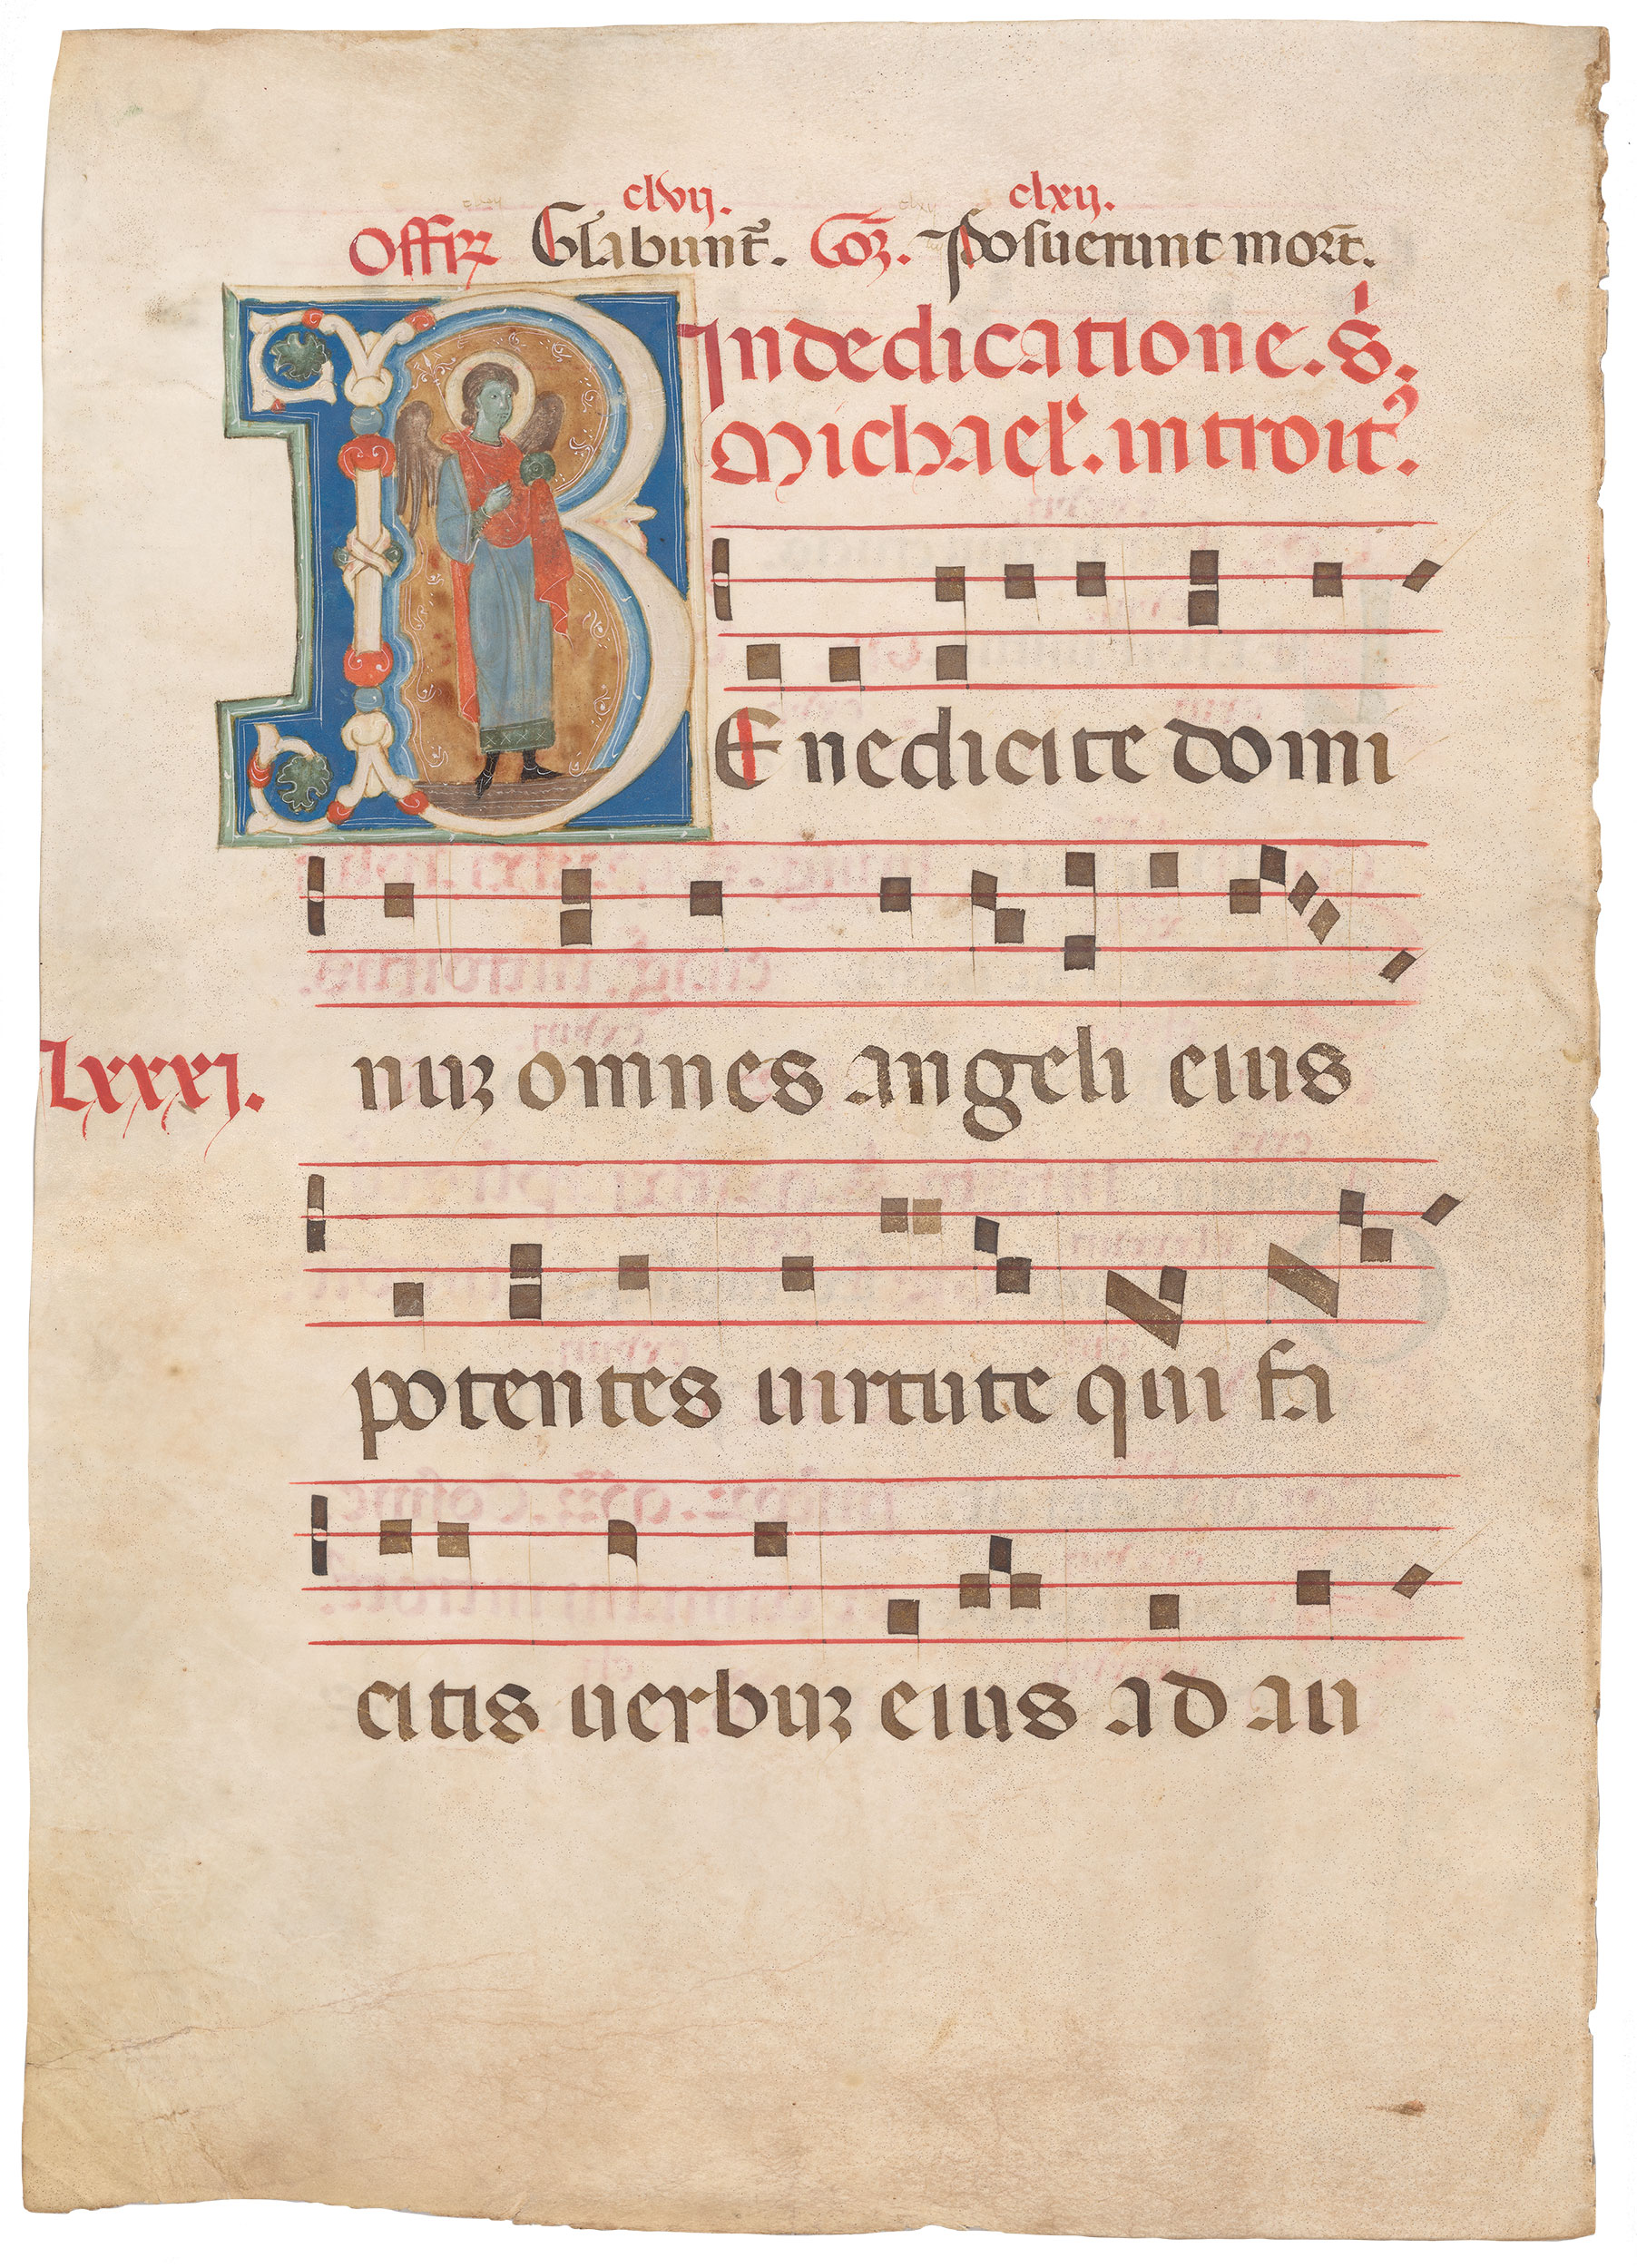 clvij. clxij.
Offirꝝ Glabunt̄. Coꝫ. Posuerunt mort̄.
In dedicatione. s̄.
Michael. introit᾽.
Benedicite domi
Lxxxj. nuꝫ omnes angeli eius
potentes uirtute qui fa
citis uerbuꝫ eius ad au